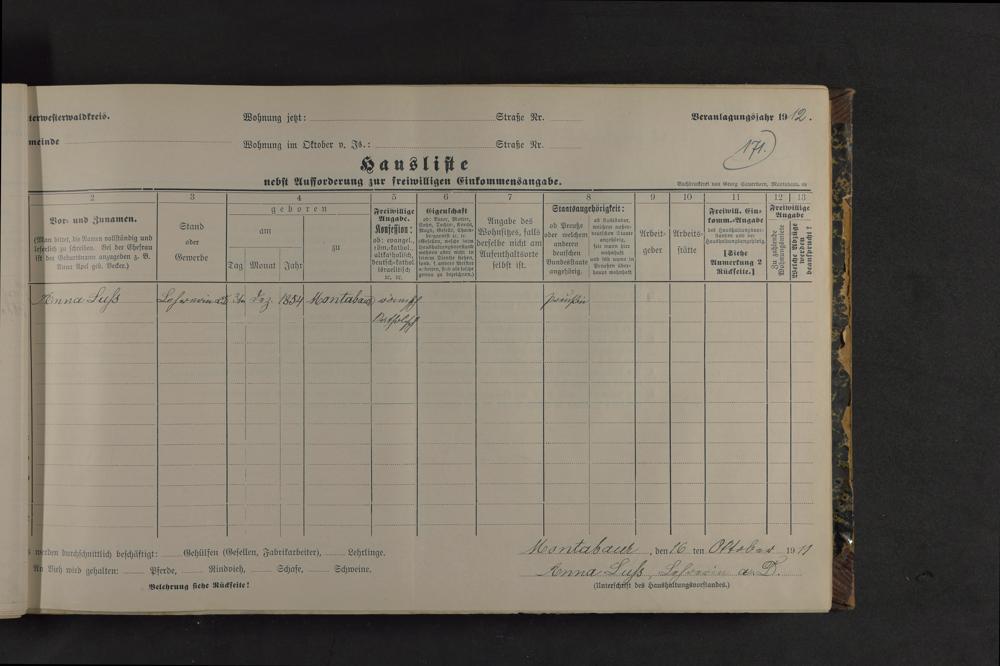 terwesterwaldkreis. Wohnung jetzt: Straße Nr. Veranlagungsjahr 1912.
meinde Wohnung im Oktober v. Js.: Straße Nr. 171.
Hausliste
nebst Aufforderung zur freiwilligen Einkommensangabe.
Buchdruckerei von Georg Sauerborn, Montabaur.
2 3 4 5 6 7 8 9 10 11 12 13
Vor- und Zunamen.
(Man bittet, die Namen vollständig und
leserlich zu schreiben. Bei der Ehefrau
ist der Geburtsname anzugeben z. B.
Anna Apel geb. Becker.)
Stand
oder
Gewerbe
geboren
am zu
Tag Monat Jahr
Freiwillige
Angabe.
Konfession:
ob: evangel.,
röm.-kathol.
altkatholisch,
deutsch-kathol.
israelitisch
ꝛc. ꝛc.
Eigenschaft
Angabe des
Wohnsitzes, falls
derselbe nicht am
Aufenthaltsorte
selbst ist.
Staatsangehörigkeit:
ob Preuße
oder welchem
anderen
deutschen
Bundesstaate
angehörig.
ob Ausländer,
welchem außer-
deutschen Staate
angehörig,
seit wann hier
wohnhaft
und seit wann in
Preußen über-
haupt wohnhaft
Arbeit-
geber
Arbeits-
stätte
Freiwill. Ein-
komm.-Angabe
des Haushaltungsvor-
standes und der
Haushaltungsangehörig.
[Siehe
Anmerkung 2
Rückseite.]
Freiwillige
Angabe
Zu zahlende
Wohnungsmiete
Welche Abzüge
werden
beansprucht?
Anna Luß Lehrerin a.D. 31. Dez. 1854 Montabaur römisch Preußin
katholisch
werden durchschnittlich beschäftigt: Gehülfen (Gesellen, Fabrikarbeiter), Lehrlinge.
An Vieh wird gehalten: Pferde, Rindvieh, Schafe, Schweine.
Belehrung siehe Rückseite!
Montabaur, den 16. ten Oktober 1911
Anna Luß, Lehrerin a. D.
(Unterschrift des Haushaltungsvorstandes.)